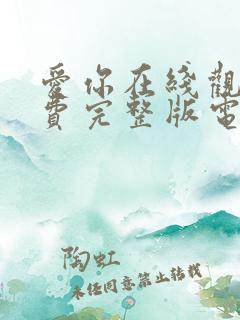 愛你在线觀
費完整版電
陶虹
未经同意禁止转载